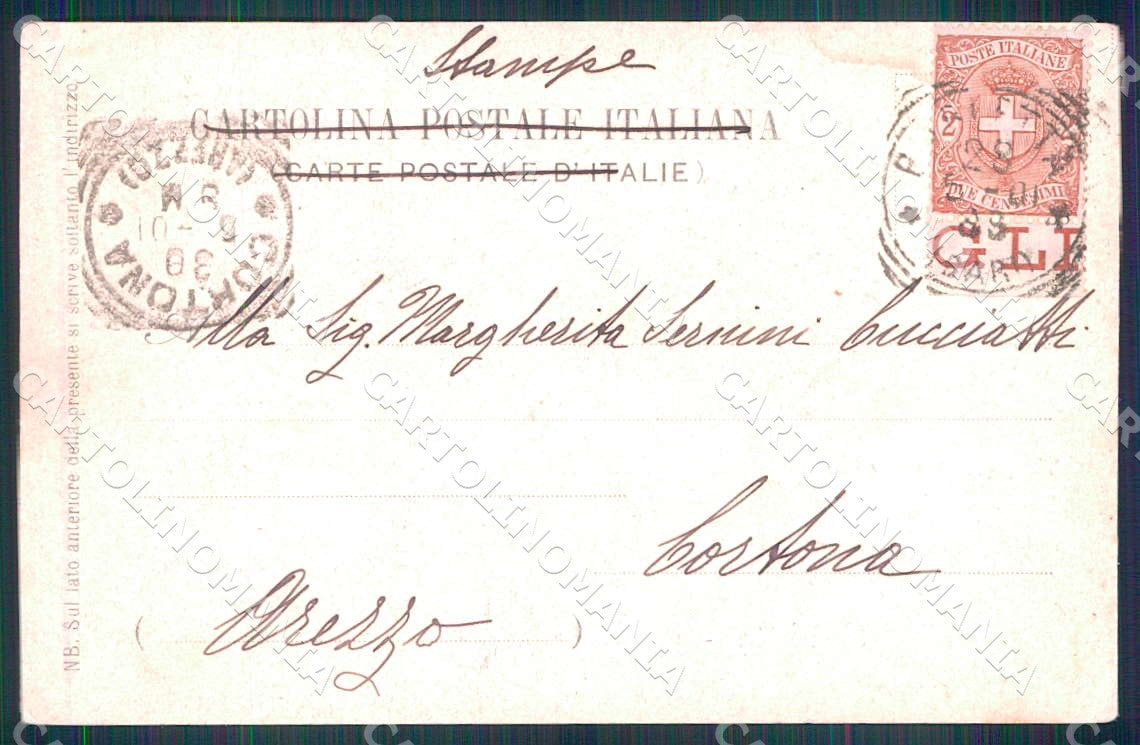 Stampe
CARTOLINA POSTALE ITALIANA
(CARTE POSTALE D'ITALIE)
POSTE ITALIANE
2
DUE CENTESIMI
GLI
CORTONA
(AREZZO)
30
6-01
8 M
Alla Sig. Margherita Sernini Cucciatti
Cortona
(Arezzo)
NB. Sul lato anteriore della presente si scrive soltanto l'indirizzo
CARTOLINOMANIA